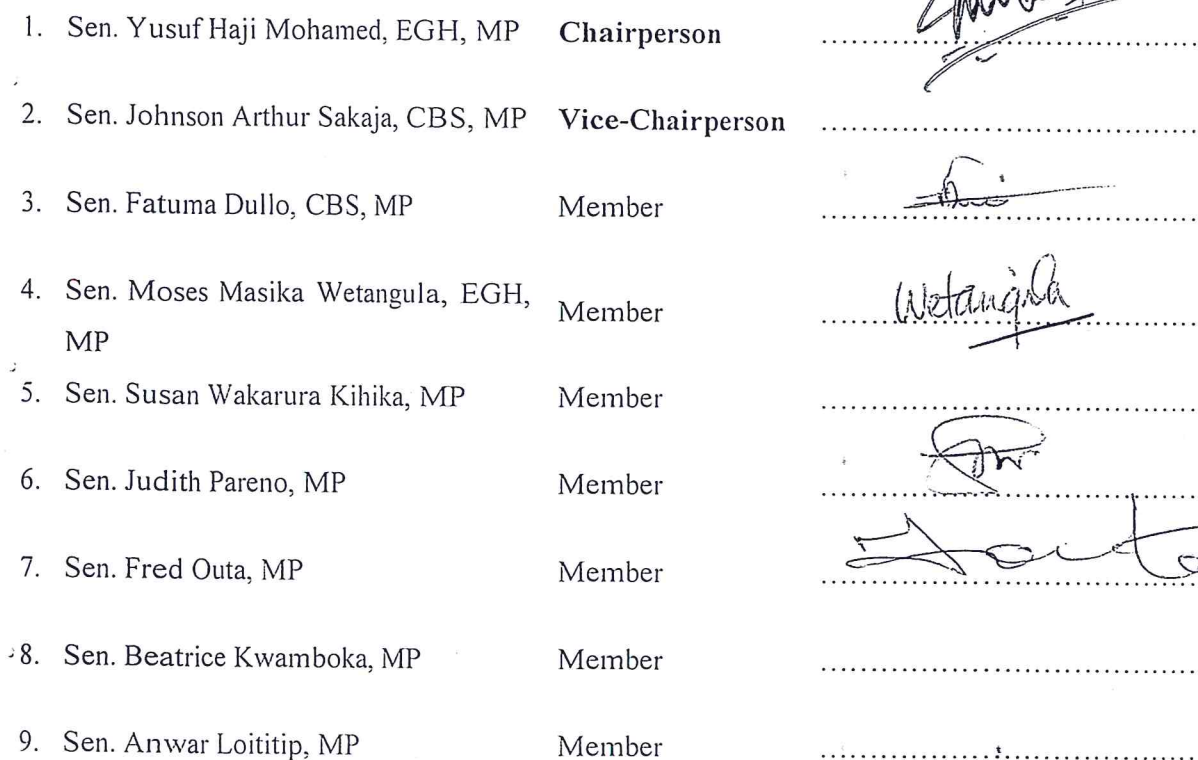 1. Sen. Yusuf Haji Mohamed, EGH, MP Chairperson ....................
2. Sen. Johnson Arthur Sakaja, CBS, MP Vice-Chairperson ....................
3. Sen. Fatuma Dullo, CBS, MP Member ....................
4. Sen. Moses Masika Wetangula, EGH, MP Member Wetangula ....................
5. Sen. Susan Wakarura Kihika, MP Member ....................
6. Sen. Judith Pareno, MP Member ....................
7. Sen. Fred Outa, MP Member ....................
8. Sen. Beatrice Kwamboka, MP Member ....................
9. Sen. Anwar Loititip, MP Member ....................